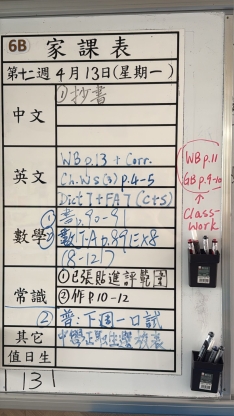 6B 家課表
第十二週 4月13日(星期一)
中文
①抄書
英文
WB p.13 + Corr.
Ch. WS (3) p.4-5
Dict 7 + FA 7 (C+S)
WB p.11
GB p.9-10
Class-
Work
數學
①書p.90-91
②數TA p.89 Ex8
(8-12)7
常識
①已張貼進評範圍
②作P.10-12
②普:下週一口試
其它
值日生
131